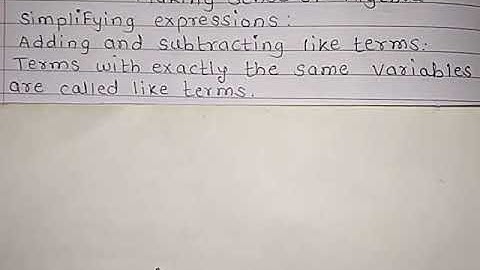 Simplifying expressions:
Adding and subtracting like terms:
Terms with exactly the same variables
are called like terms.